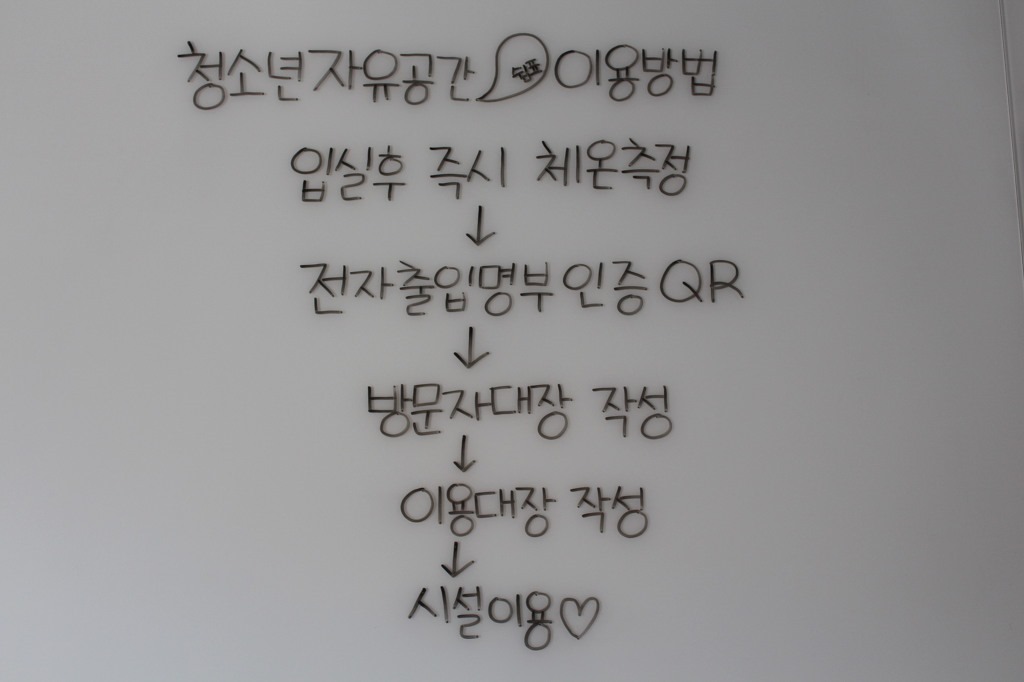 청소년자유공간 쉼표 이용방법
입실후 즉시 체온측정
↓
전자출입명부 인증 QR
↓
방문자대장 작성
↓
이용대장 작성
↓
시설이용♡